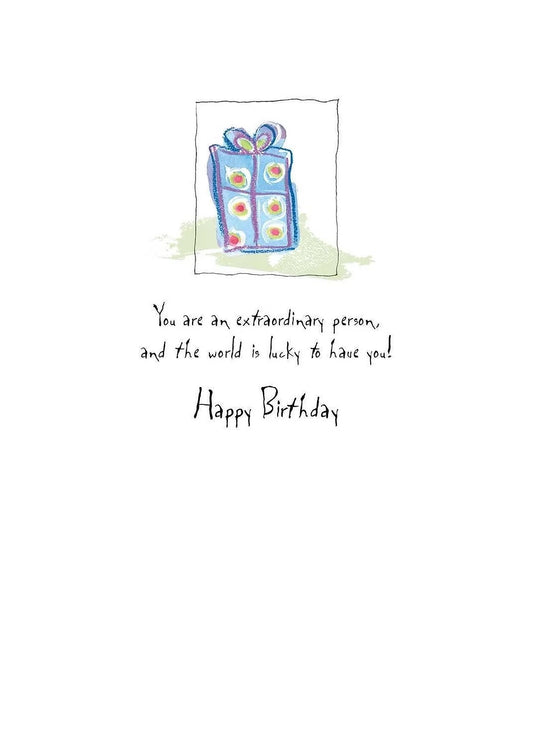 You are an extraordinary person,
and the world is lucky to have you!
Happy Birthday